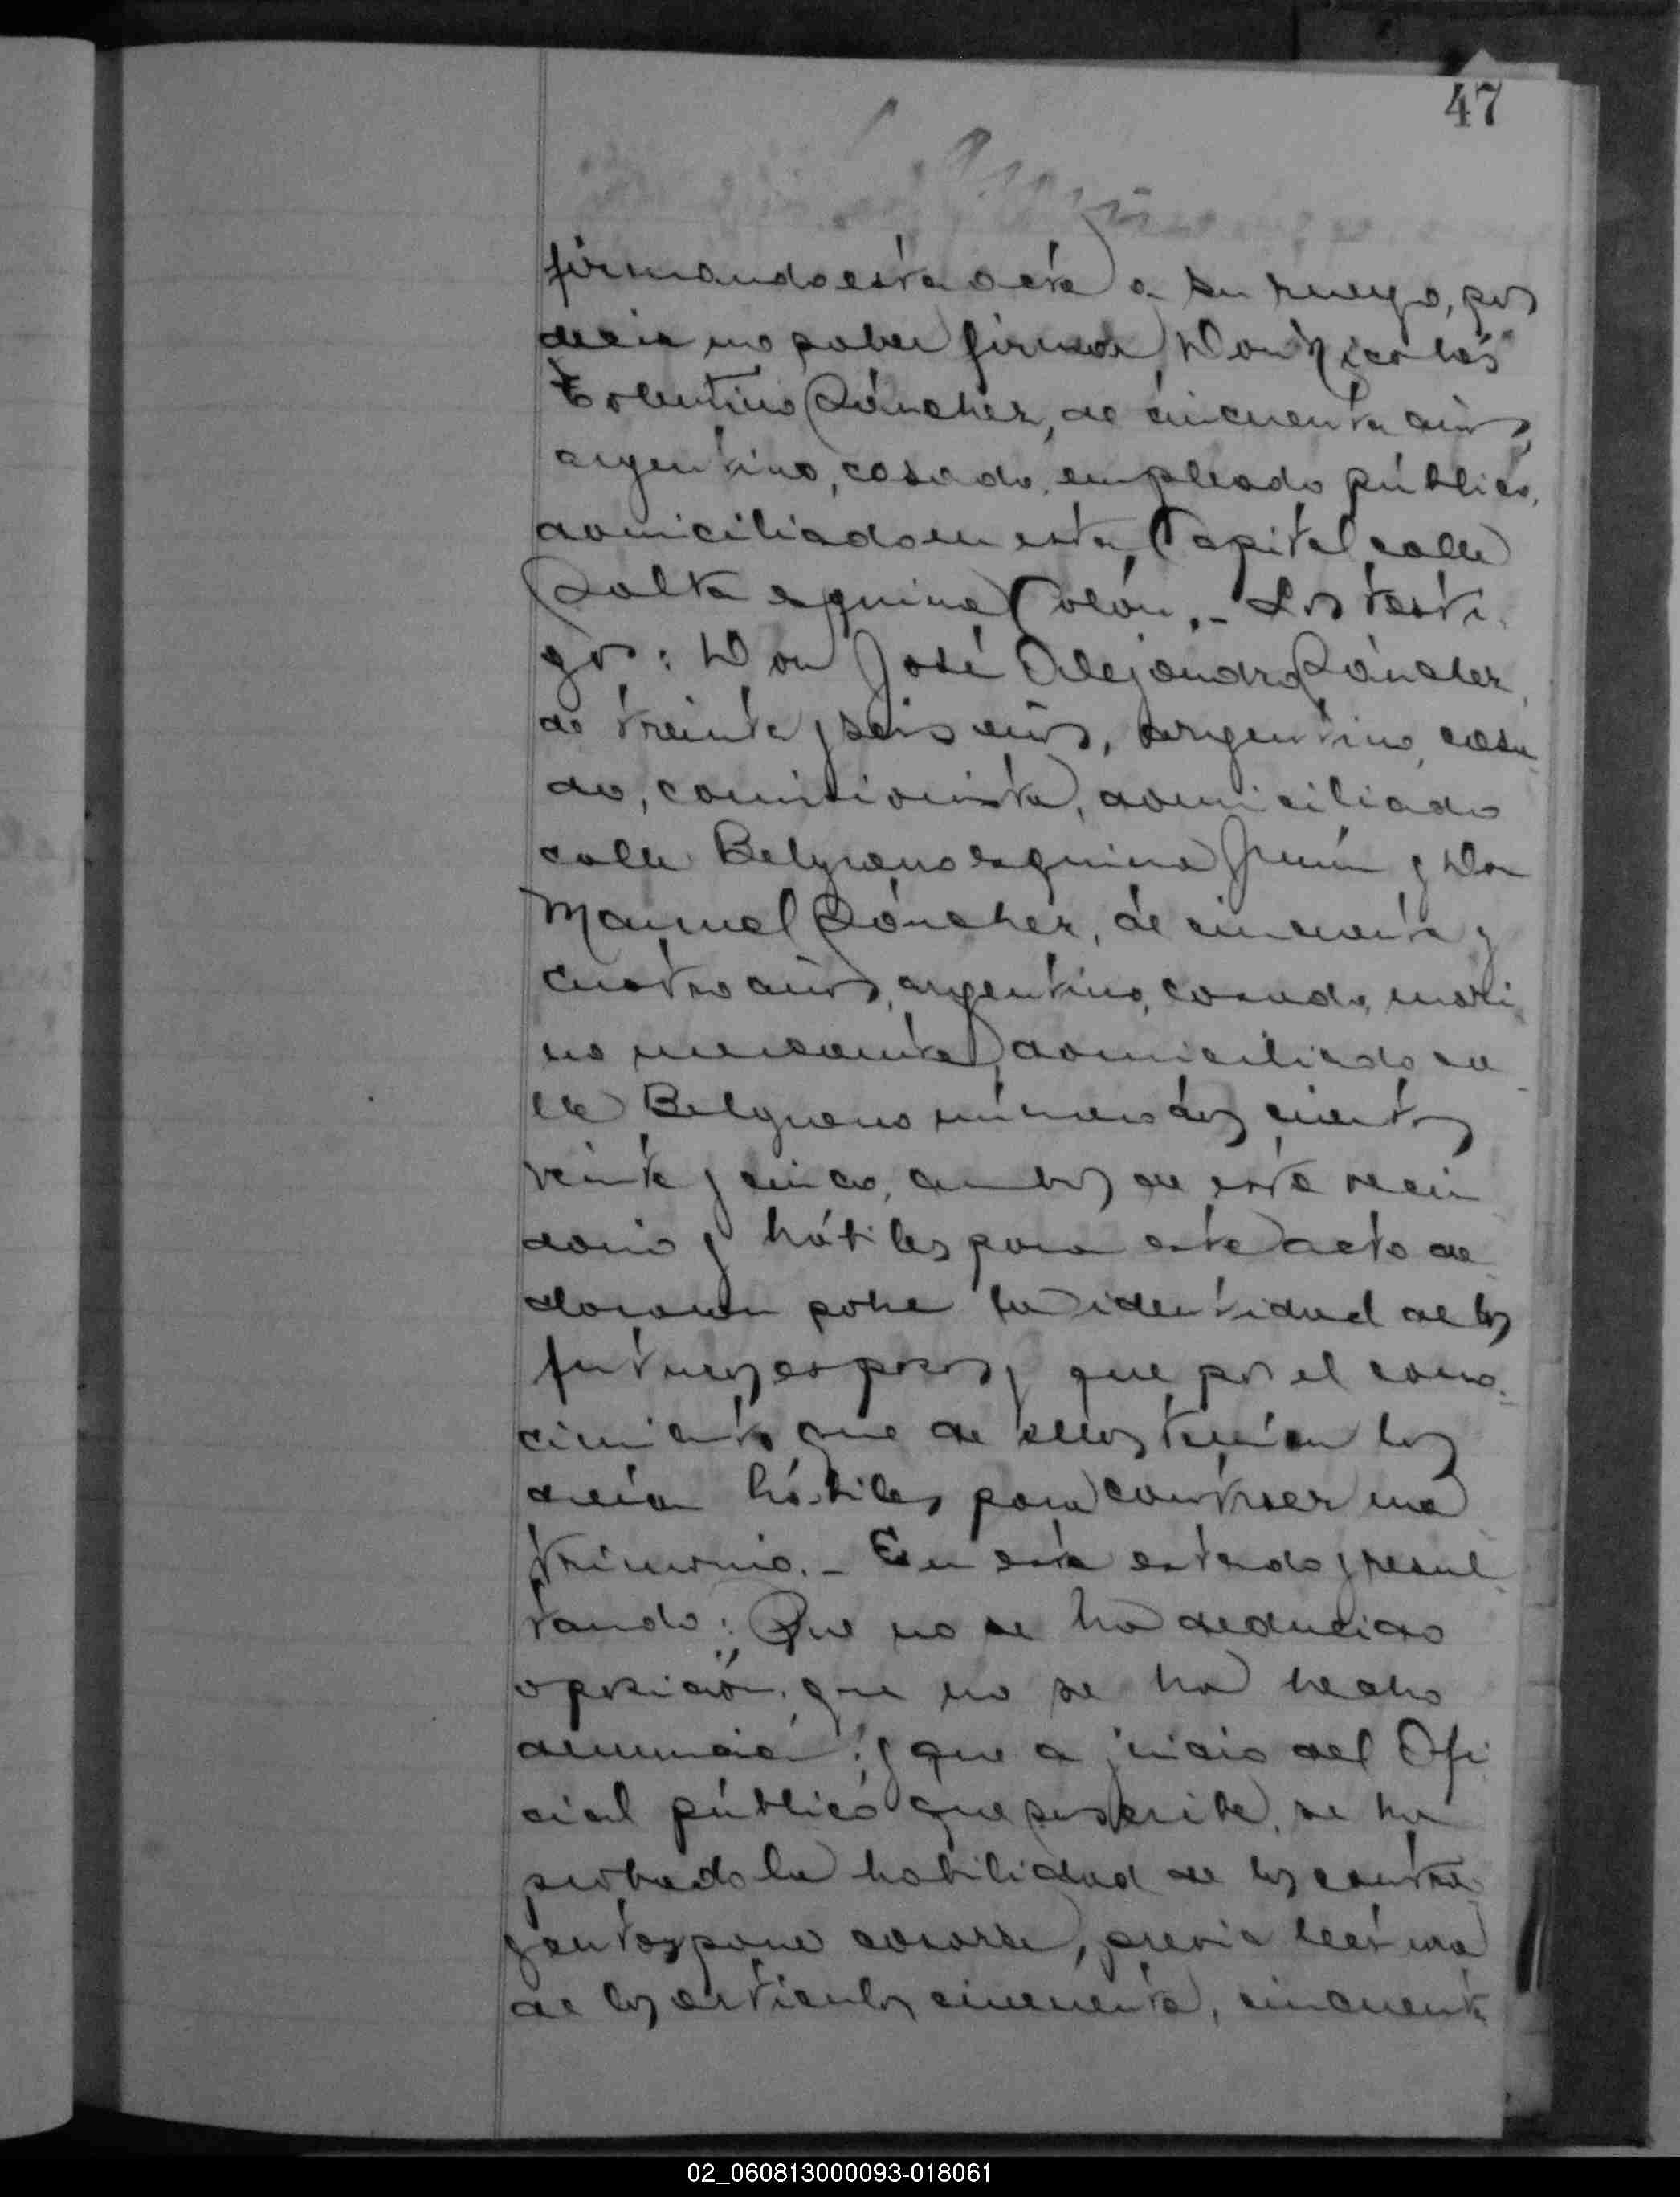 47
firmando esta acta a su ruego, por
decir no saber firmar, Don Nicolás
Tolentino Sánchez, de cincuenta años,
argentino, casado, empleado público,
domiciliado en esta Capital calle
Salta esquina Colón.- Los testi-
gos: Don José Alejandro Sánchez,
de treinta y seis años, argentino, casa-
do, comisionista, domiciliado
calle Belgrano esquina Junín y Don
Manuel Sánchez, de cincuenta y
cuatro años, argentino, casado, mari-
no mercante, domiciliado ca-
lle Belgrano número dos cientos
veinte y cinco, ambos de este vecin-
dario y hábiles para este acto de-
claran sobre la identidad de los
futuros esposos y que por el cono-
cimiento que de ellos tenían los
creían hábiles para contraer ma-
trimonio.- En este estado y resul-
tando: Que no se ha deducido
oposición, que no se ha hecho
denuncia; y que a juicio del Ofi-
cial público que suscribe, se ha
probado la habilidad de los contra-
yentes para casarse, previa lectura
de los artículos cincuenta, cincuenta
02_060813000093-018061